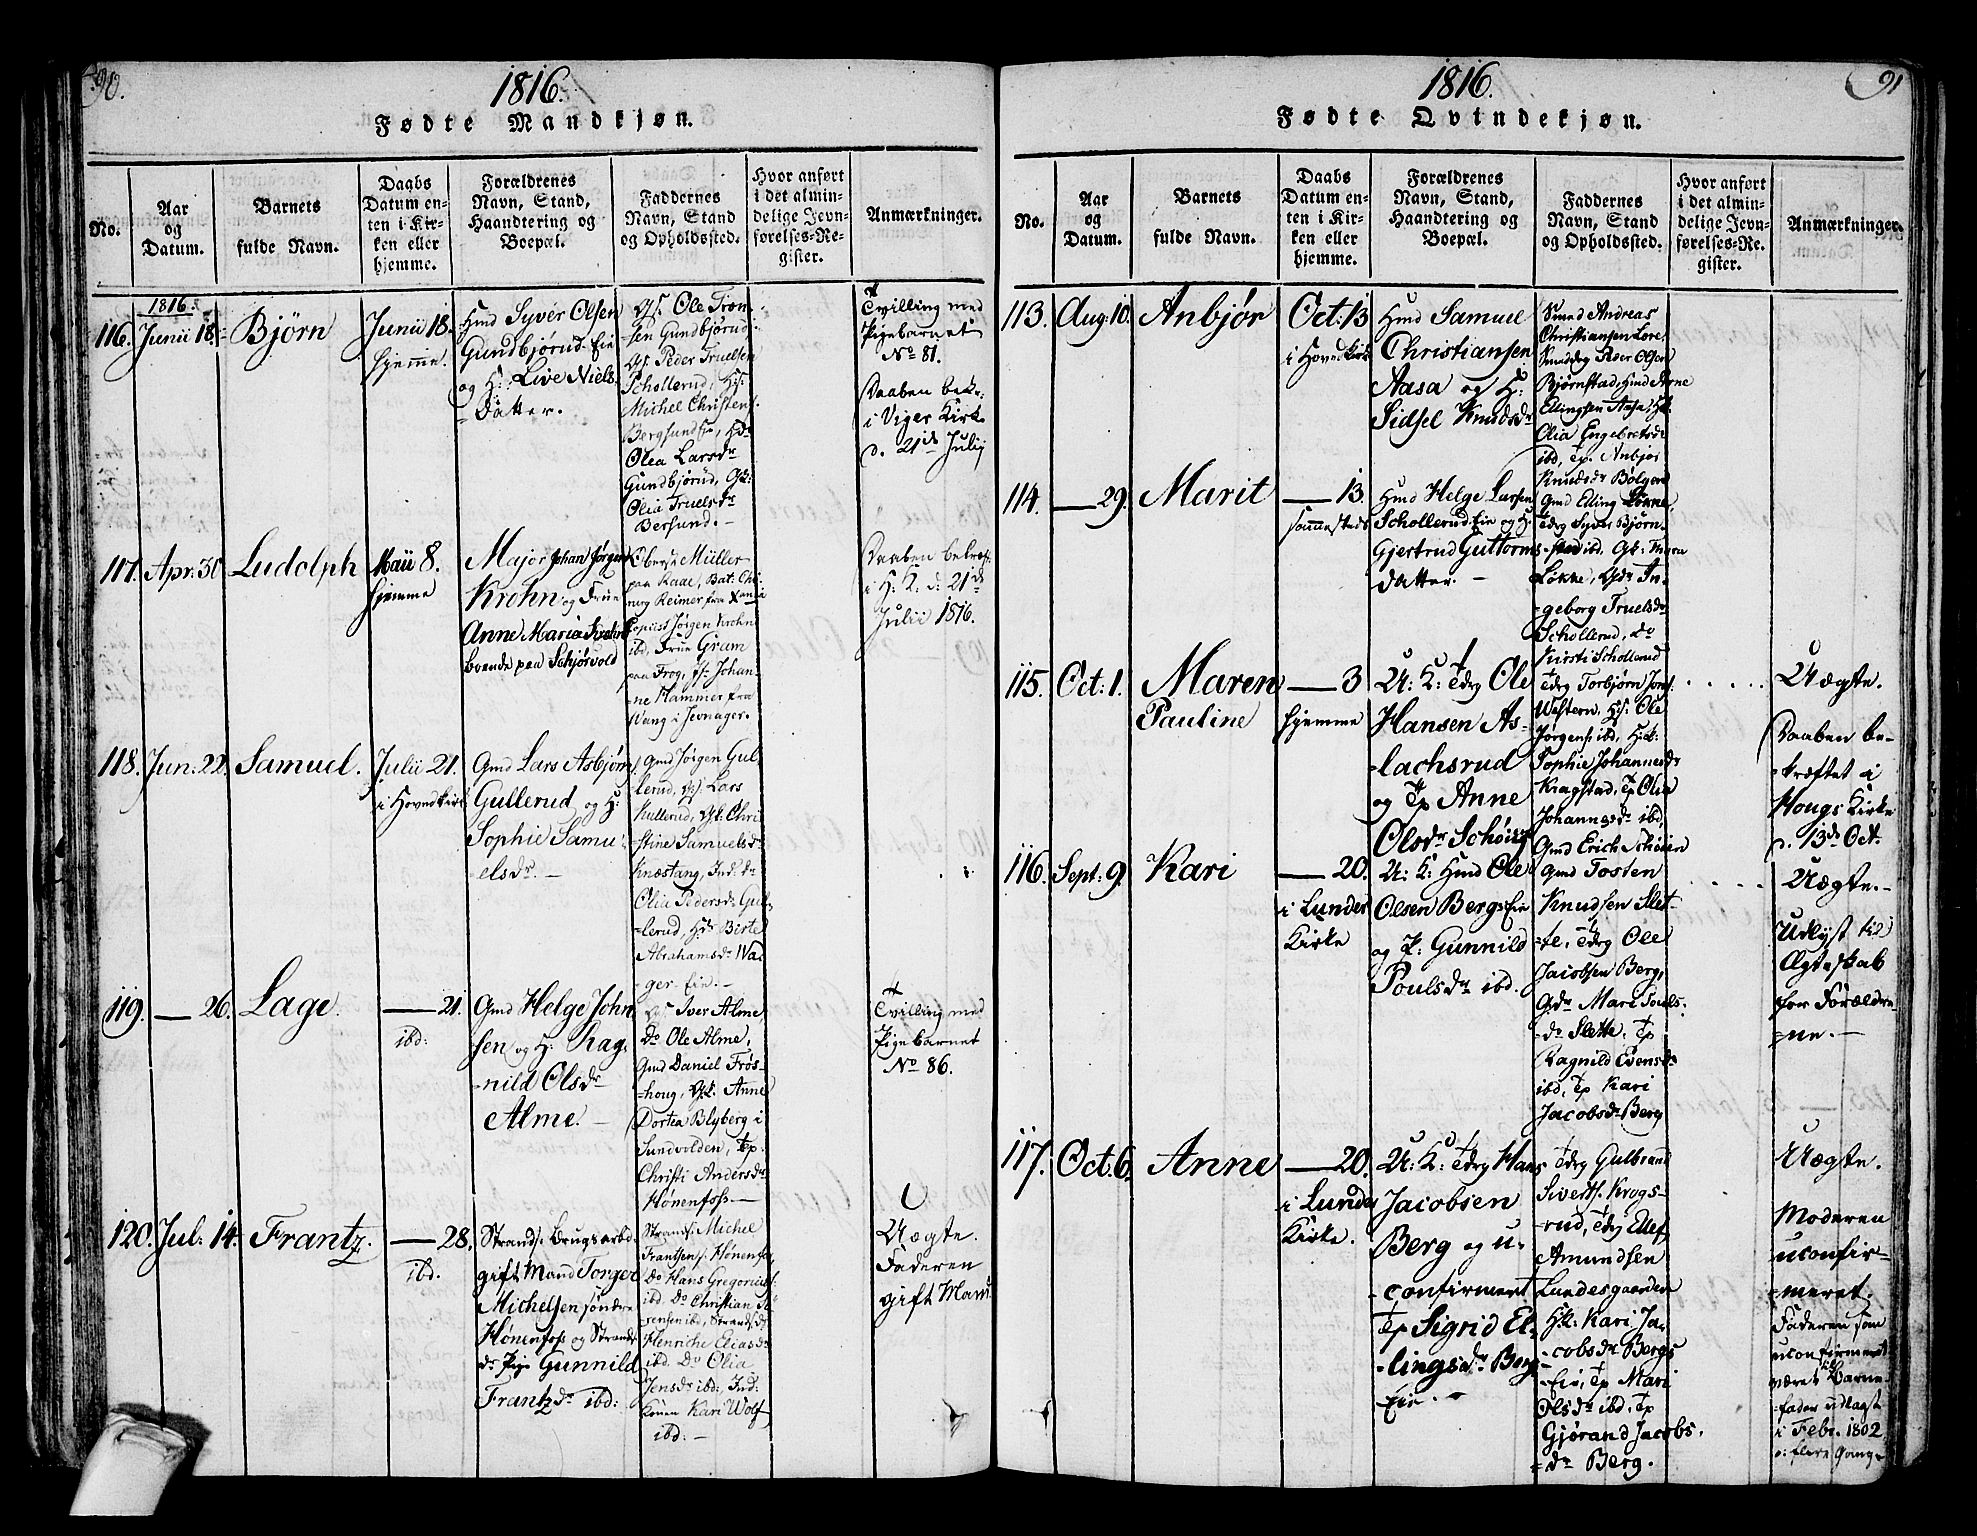 90.
1816.
Fødte Mandkjøn.
No.
Aar
og
Datum.
Barnets
fulde Navn.
Daabs
Datum en-
ten i Kir-
ken eller
hjemme.
Forældrenes
Navn, Stand,
Haandtering og
Boepæl.
Faddernes
Navn, Stand
og Opholdssted.
Hvor anført
i det almin-
delige Jevn-
førelses-Re-
gister.
Anmærkninger.
1816.
116. Junii 18. Bjørn
Junii 18.
hjemme.
Hmd Syver Olsen
Gundbjørud Eie
og H: Live Niels
Datter.
Gs. Ole Trom
sen Gundbjørud
Gs. Peder Truelsen
Schollerud, Hs:
Michel Christens.
Bergsund, Hdr
Olea Larsdr
Gundbjørud, Gk:
Olia Truelsdr
Bersund.
Tvilling med
Pigebarnet
No 81.
Daaben bekr.
i Viger Kirke
d. 21de Julij
117. Apr: 30 Ludolph
Maii 8.
hjemme
Major Johan Jørgen
Krohn og Frue
Anne Maria Krohn
boende paa Schjørvold
Oberst Müller
paa Raae, Bat: Chi-
rurg Reimer fra Xania
Copiist Jørgen Krohn
ibd, Frue Gram
paa Frog, Jfr Johan-
ne Hammer fra
Vang i Jevnager.
Daaben bekræf.
i H. K. d. 21de
Julii 1816.
118. Jun: 22. Samuel.
Julii 21.
i Hovedkirk
Gmd Lars Asbjørns
Gullerud og H:
Sophie Samu-
elsdr.
Gmd Jørgen Gul-
lerud, Gs. Lars
Kullerud, Gk: Chri
stine Samuelsdr
Knæstang, Ind: dr
Olia Pedersdr Gul-
lerud, Hdr Birte
Abrahamsdr Wa
ger Eie.
119. — 26. Lage.
— 21.
ibd:
Gmd Helge John
sen og H: Rag-
nild Olsdr
Alme.
Gs Iver Alme,
Do Ole Alme,
Gmd Daniel Frøs-
houg, Gk: Anne
Dortea Blyberg i
Sundvolden, Tp.
Christi Andersdr
Hønenfoss
Tvilling med
Pigebarnet
No 86.
120. Jul: 14. Frantz.
— 28.
ibd.
Strands. Brugsarbd.
gift Mand Torger
Michelsen søndre
Hønenfoss og Strands.
dr Pige Gunnild
Frantzdr ibd:
Strands: Michel
Frantsen s. Hønenfos,
Do Hans Gregorius.
ibd. Do Christian Sø
rensen ibd, Strandsdr
Henriche Eliasdr
ibd. Do Olia
Jensdr ibd:, Ind:
Konen Kari Wolf
ibd:
Uægte.
Faderen
gift Mand
91
1816.
Fødte Qvindekjøn.
No.
Aar
og
Datum.
Barnets
fulde Navn.
Daabs
Datum en-
ten i Kir-
ken eller
hjemme.
Forældrenes
Navn, Stand,
Haandtering og
Boepæl.
Faddernes
Navn, Stand
og Opholdssted.
Hvor anført
i det almin-
delige Jevn-
førelses-Re-
gister.
Anmærkninger.
113. Aug: 10. Anbjør
Oct: 13
i Hovedkirk
Hmd Samuel
Christiansen
Aasa og H:
Sidsel Knudsdr
Smed Andreas
Christiansen Lore
Smeddrg Peer Olsen
Bjørnstad, Hmd Arne
Ellingsen Aasa, Hk:
Olia Engebretsdr
ibd, Tp. Anbjør
Knudsdr Bølgen
114. — 29. Marit
— 13.
sammesteds
Hmd Helge Larsen
Schollerud Eie og H.
Gjertrud Guttorms
datter.
Gmd Elling Løkne,
Tdrg Syver Bjørn-
stad ibd, Gk: Thorn
Løkke, Gdr In-
geborg Truelsdr
Schollerud, do
Kirsti Schollerud
115. Oct: 1. Maren
Pauline
— 3
hjemme
U: K: Tdrg Ole
Hansen As-
lachsrud
og Tp Anne
Olsdr Schøien
Tdrg Torbjørn Jons.
Western, Hs: Ole
Jørgens: ibd, Hk:
Sophie Johannesdr
Kragstad, Tp Olia
Johannesdr ibd,
Gmd Erich Schøien
Uægte.
Daaben be-
kræftet i
Hougs Kirke
d. 13de Oct.
116. Sept: 9. Kari
— 20.
i Lunder
Kirke
U: K: Hmd Ole
Olsen Bergs Eie
og P: Gunnild
Poulsdr ibd.
Gmd Tosten
Knudsen Slet-
te, Tdrg Ole
Jacobsen Berg,
Gdr Mari Pouls-
dr Slette, Tp
Ragnild Evensdr
ibd, Tp Kari
Jacobsdr Berg
Uægte.
Udlyst til
Ægteskab
for Forældre
ne.
117. Oct: 6. Anne
— 20.
i Lunde
Kirke.
U: K: Tdrg Hans
Jacobsen
Berg og u-
confirmert
Tp Sigrid El-
lingsdr Berg
Eie.
Tdrg Gulbrand
Siverts. Krogs-
rud, Tdrg Ellef
Amundsen
Lundesgaarden
Hk: Kari Ja-
cobsdr Bergs
Eie, Tp Mari
Olsdr ibd, Tp
Gjørand Jacobs-
dr Berg.
Uægte.
Moderen
uconfir-
meret.
Faderen som
uconfirmeret
været til Barne-
fader udlagt
i Febr. 1802
o: flere Gange